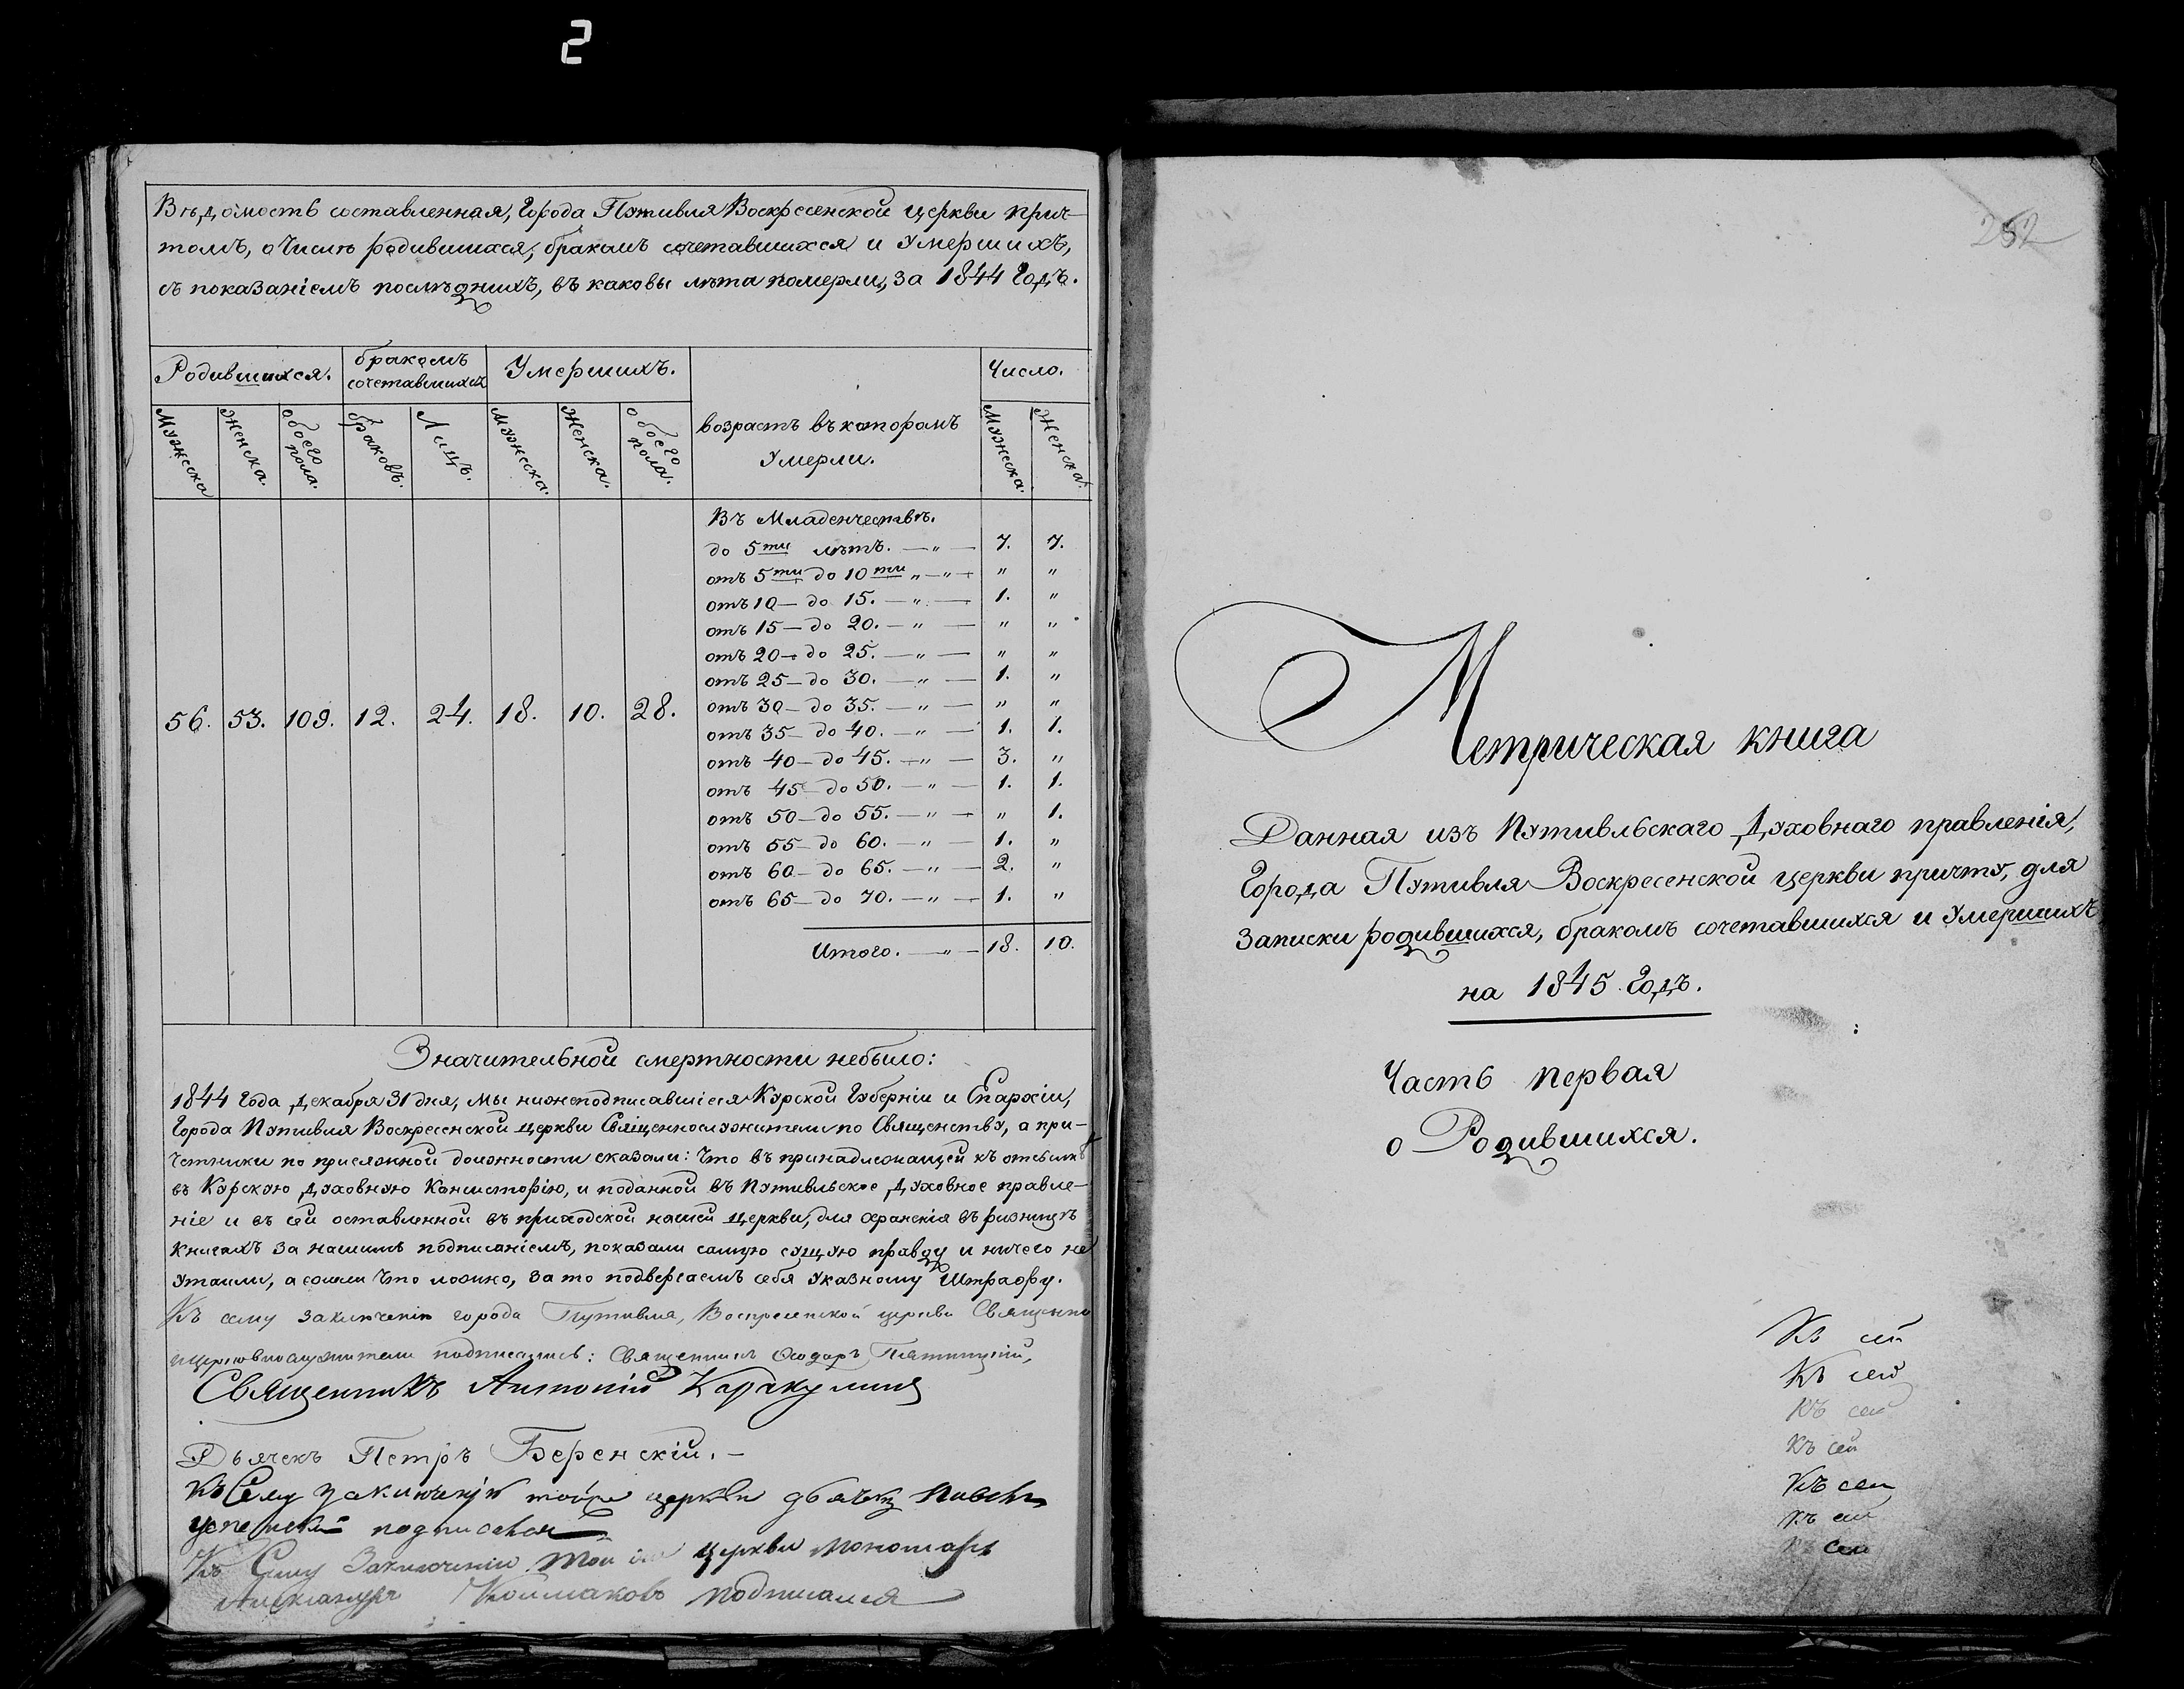 2
Вѣдомость составленная, Города Путивля Воскресенской церкви прич-
томъ, о Числѣ родившихся, бракомъ сочетавшихся и Умершихъ,
съ показаніемъ послѣднихъ, въ каковы лѣта померли, за 1844 Годъ.
Родившихся. бракомъ сочетавшихся Умершихъ. Число.
Мужеска Женска. обоего пола. браковъ. Лицъ. Мужеска. Женска. обоего пола. возрастъ въ которомъ Умерли. Мужеска. Женска.
Въ Младенчествѣ.
до 5ти лѣтъ. — „ — 7. 7.
отъ 5ти до 10ти „ — „ — „ „
отъ 10 — до 15. — „ — 1. „
отъ 15 — до 20. — „ — „ „
отъ 20 — до 25. — „ — „ „
отъ 25 — до 30. — „ — 1. „
отъ 30 — до 35. — „ — „ „
56. 53. 109. 12. 24. 18. 10. 28.
отъ 35 — до 40. — „ — 1. 1.
отъ 40 — до 45. — „ — 3. „
отъ 45 — до 50. — „ — 1. 1.
отъ 50 — до 55. — „ — „ 1.
отъ 55 — до 60. — „ — 1. „
отъ 60 — до 65. — „ — 2. „
отъ 65 — до 70. — „ — 1. „
Итого. — „ — 18. 10.
Значительной смертности небыло:
1844 Года Декабря 31 дня, мы нижеподписавшіеся Курской Губерніи и Епархіи,
Города Путивля Воскресенской церкви Священнослужители по Священству, а при-
четники по присяжной должности сказали: Что въ принадлежащей къ отсылкѣ
въ Курскую Духовную Консисторію, и поданной въ Путивльское Духовное правле-
ніе и въ сей оставленной въ приходской нашей церкви, для храненія въ ризницѣ
книгахъ за нашимъ подписаніемъ, показали самую сущую правду и ничего не
утаили, а если что ложно, за то подвергаемъ себя указному Штрафу.
Къ сему заключенію города Путивля, Воскресенской церкви Священно
церковнослужители подписались: Священникъ Ѳеодоръ Пятницкій,
Священникъ Антоній Каракулинъ
Дьячекъ Петръ Беренскій. —
Къ Сему заключенію тойже церкви дьячекъ
подписался
Къ Сему Заключенію той же церкви Пономарь
Александръ Колмаковъ подписался
252
Метрическая книга
Данная изъ Путивльскаго Духовнаго правленія,
Города Путивля Воскресенской церкви причту, для
Записки родившихся, бракомъ сочетавшихся и Умершихъ
на 1845 Годъ.
Часть первая
о Родившихся.
Къ сей
Къ сей
Къ сей
Къ сей
Къ сей
Къ сей
Къ сей